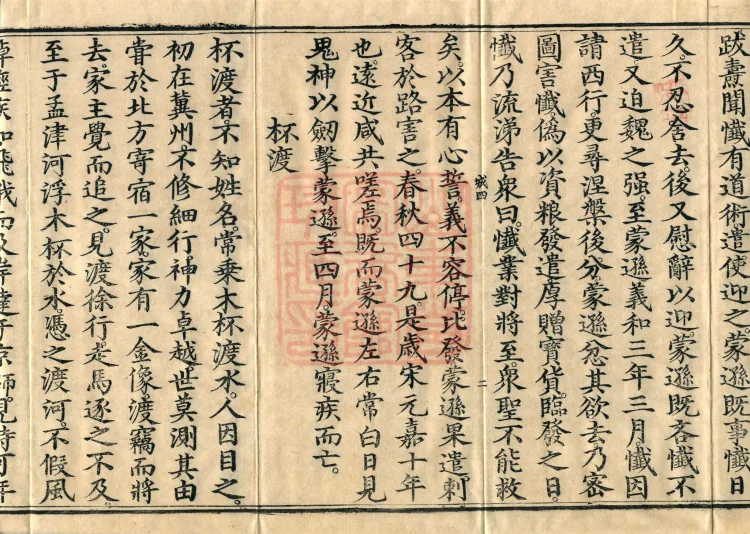 跋燾聞懴有道術遣使迎之蒙遜旣事懴日
久。不忍舍去。後又慰辭以迎。蒙遜旣吝懴不
遣。又迫魏之强。至蒙遜義和三年三月。懴因
請西行。更尋涅槃後分。蒙遜忿其欲去。乃密
圖害懴。僞以資粮發遣。厚贈寶貨。臨發之日。
懴乃流涕告衆曰。懴業對將至。衆聖不能救
矣。以本有心誓。義不容停。比發蒙遜果遣刺
客於路害之。春秋四十九。是歲宋元嘉十年
也。遠近咸共嗟焉。旣而蒙遜左右常白日見
鬼神以劒擊蒙遜。至四月蒙遜寢疾而亡。
杯渡
杯渡者。不知姓名。常乘木杯渡水。人因目之。
初在冀州。不修細行。神力卓越。世莫測其由
甞於北方寄宿一家。家有一金像。渡竊而將
去。家主覺而追之。見渡徐行。走馬逐之不及
至于孟津河。浮木杯於水。憑之渡河。不假風
城四
二